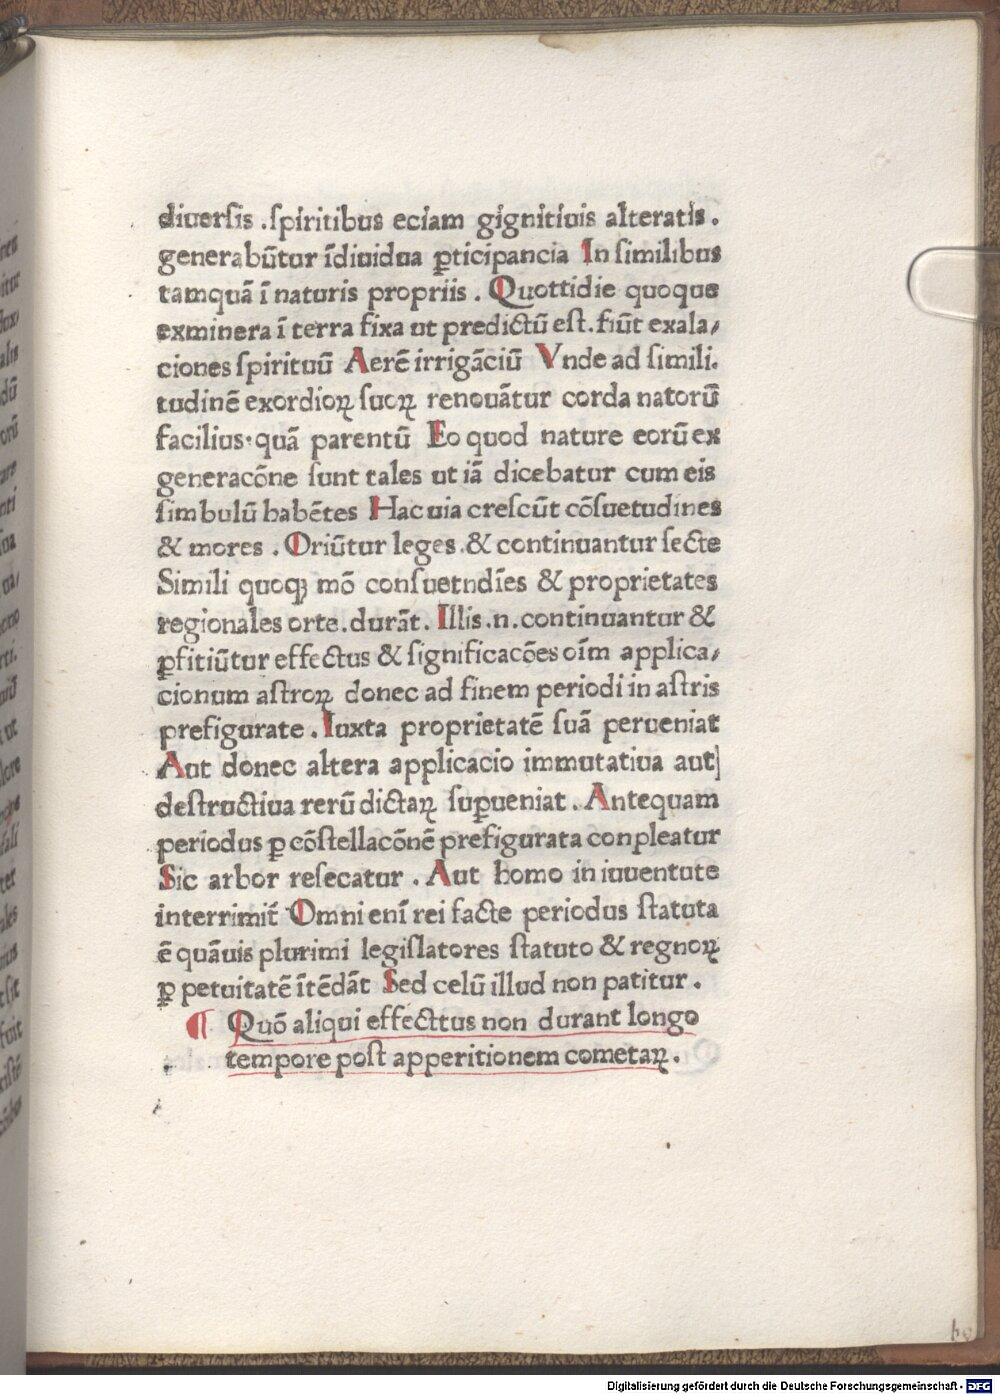 diuersis .spiritibus eciam gignitiuis alteratis.
generabūtur īdiuidua ꝑticipancia In similibus
tamquā ī naturis propriis . Quottidie quoque
exminera ī terra fixa ut predictū est. fiūt exala/
ciones spirituū Aerē irrigāciū Vnde ad simili.
tudinē exordioꝝ suoꝝ renouātur corda natorū
facilius·quā parentū Eo quod nature eorū ex
generacōne sunt tales ut iā dicebatur cum eis
simbulū habētes Hac uia crescūt cōsuetudines
& mores . Oriūtur leges .& continuantur secte
Simili quoqꝫ mō consuetndīes & proprietates
regionales orte.durāt. Illis .n.continuantur &
ꝑfitiūtur effectus & significacōes oīm applica/
cionum astroꝝ donec ad finem periodi in astris
prefigurate . Iuxta proprietatē suā perueniat
Aut donec altera applicacio immutatiua aut]
destructiua rerū dictaꝝ suꝑueniat . Antequam
periodus ꝑ cōstellacōnē prefigurata conpleatur
Sic arbor resecatur . Aut homo in iuuentute
interrimit̄ Omni enī rei facte periodus statuta
ē quāuis plurimi legislatores statuto & regnoꝝ
ꝑ petuitatē ītēdāt Sed celū illud non patitur .
¶ Quō aliqui effecttus non durant longo
tempore post apperitionem cometaꝝ .
Digitalisierung gefördert durch die Deutsche Forschungsgemeinschaft - DFG